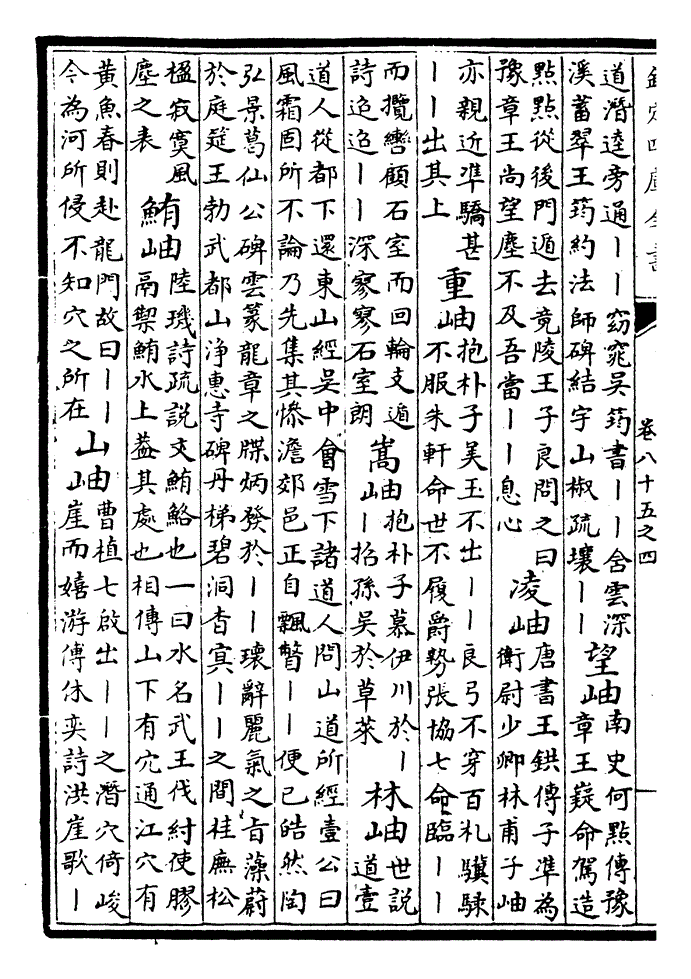 欽定四庫全書
卷八十五之四
道潛逵旁通丨丨窈窕吳筠書丨丨舍雲深
溪蓄翠王筠約法師碑結宇山椒疏壤丨丨
望岫
南史何點傳豫
章王嶷命駕造
點點從後門遁去竟陵王子良問之曰
豫章王尚望塵不及吾當丨丨息心
凌岫
唐書王鉷傳子準為
衛尉少卿林甫子岫
亦親近準驕甚
丨丨出其上
重岫
抱朴子美玉不出丨丨良弓不穿百札驥騄
不服朱軒命世不履爵勢張協七命臨丨丨
而攬轡顧石室而回輪支遁
詩迢迢丨丨深寥寥石室朗
嵩岫
抱朴子慕伊川於丨
丨招孫吳於草萊
林岫
世說
道壹
道人從都下還東山經吳中會雪下諸道人問山道所經壹公曰
風霜固所不論乃先集其慘澹郊邑正自飄瞥丨丨便已皓然陶
弘景葛仙公碑雲篆龍章之牒炳發於丨丨瓌辭麗氣之旨藻蔚
於庭筵王勃武都山淨惠寺碑丹梯碧洞杳冥丨丨之間桂廡松
楹寂寞風
塵之表
鮪岫
陸璣詩疏說文鮪鮥也一曰水名武王伐紂使膠
鬲禦鮪水上蓋其處也相傳山下有穴通江穴有
黃魚春則赴龍門故曰丨丨
今為河所侵不知穴之所在
山岫
曹植七啟出丨丨之潛穴倚峻
崖而嬉游傅休奕詩洪崖歌丨